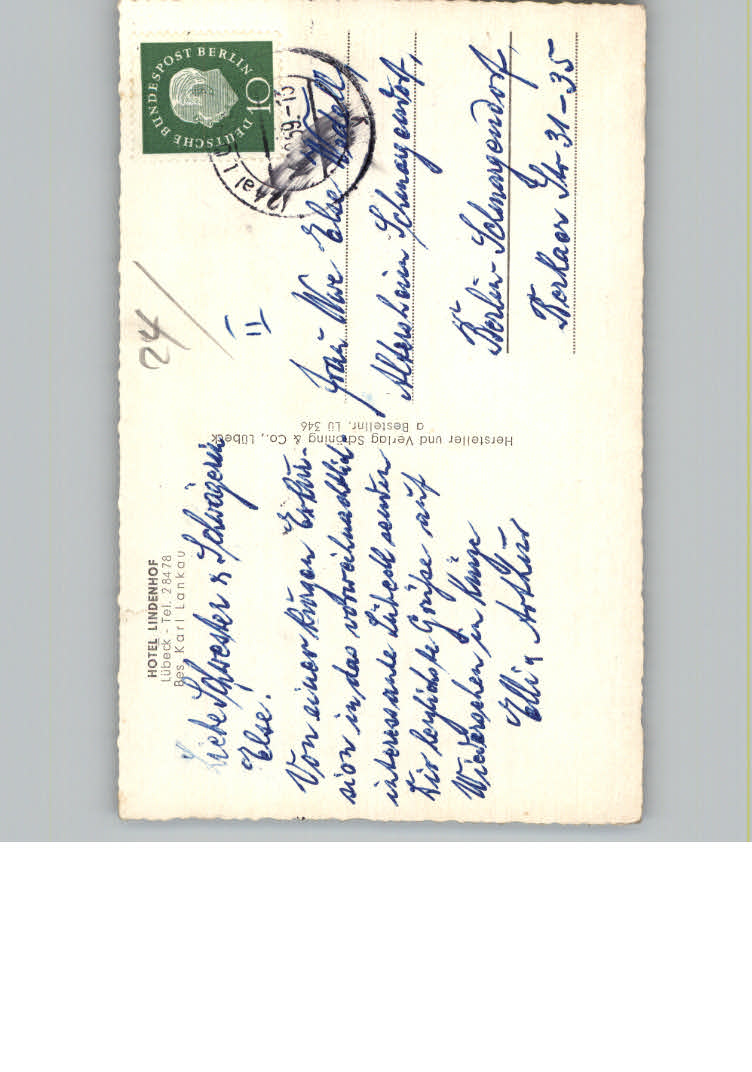 HOTEL LINDENHOF
Lübeck - Tel. 28478
Bes. Karl Lankau
Liebe Schwester & Schwägerin
Else.
Von einer kurzen Exkur-
sion in das vorweihnachtlich
interessante Lübeck senden
Dir herzlichste Grüße auf
Wiedersehen in Kürze
Elli & Arthur
Hersteller und Verlag Schöning & Co., Lübeck
a Bestellnr. Lü 346
24/
II
DEUTSCHE BUNDESPOST BERLIN
10
59-13
Frau Wwe Else
Altersheim Schmargendorf,
Berlin-Schmargendorf,
Berkaer Str 31-35